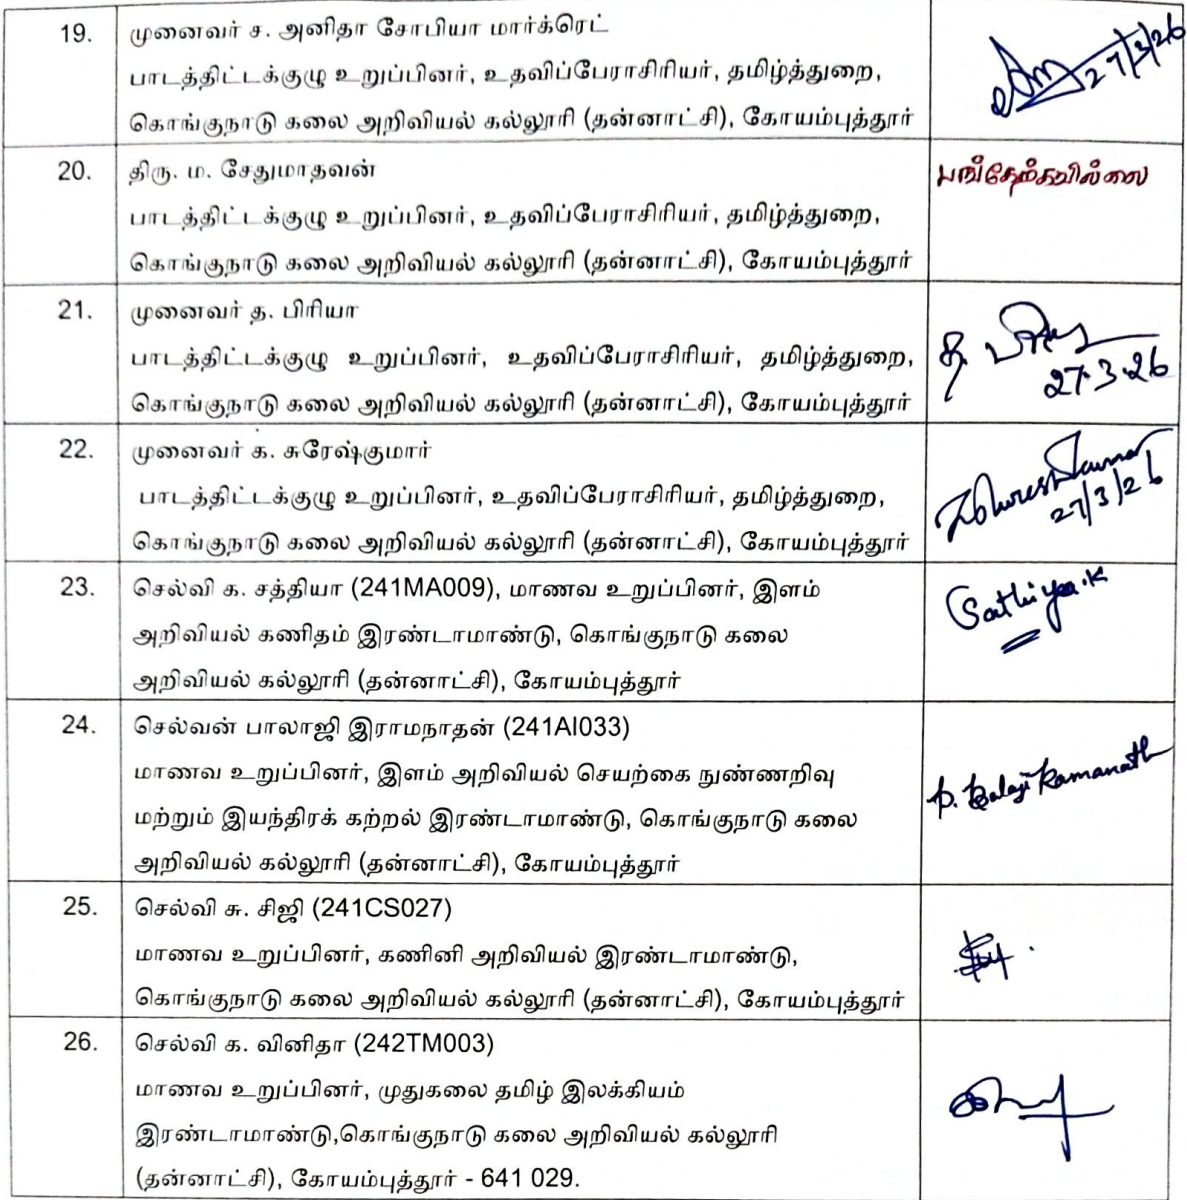 19. முனைவர் ச. அனிதா சோபியா மார்க்ரெட்
பாடத்திட்டக்குழு உறுப்பினர், உதவிப்பேராசிரியர், தமிழ்த்துறை,
கொங்குநாடு கலை அறிவியல் கல்லூரி (தன்னாட்சி), கோயம்புத்தூர்
27/3/26
20. திரு. ம. சேதுமாதவன்
பாடத்திட்டக்குழு உறுப்பினர், உதவிப்பேராசிரியர், தமிழ்த்துறை,
கொங்குநாடு கலை அறிவியல் கல்லூரி (தன்னாட்சி), கோயம்புத்தூர்
பங்கேற்கவில்லை
21. முனைவர் த. பிரியா
பாடத்திட்டக்குழு உறுப்பினர், உதவிப்பேராசிரியர், தமிழ்த்துறை,
கொங்குநாடு கலை அறிவியல் கல்லூரி (தன்னாட்சி), கோயம்புத்தூர்
த. பிரியா
27.3.26
22. முனைவர் க. சுரேஷ்குமார்
பாடத்திட்டக்குழு உறுப்பினர், உதவிப்பேராசிரியர், தமிழ்த்துறை,
கொங்குநாடு கலை அறிவியல் கல்லூரி (தன்னாட்சி), கோயம்புத்தூர்
27/3/26
23. செல்வி க. சத்தியா (241MA009), மாணவ உறுப்பினர், இளம்
அறிவியல் கணிதம் இரண்டாமாண்டு, கொங்குநாடு கலை
அறிவியல் கல்லூரி (தன்னாட்சி), கோயம்புத்தூர்
Sathiya.K
24. செல்வன் பாலாஜி இராமநாதன் (241AI033)
மாணவ உறுப்பினர், இளம் அறிவியல் செயற்கை நுண்ணறிவு
மற்றும் இயந்திரக் கற்றல் இரண்டாமாண்டு, கொங்குநாடு கலை
அறிவியல் கல்லூரி (தன்னாட்சி), கோயம்புத்தூர்
P. Balaji Ramanath
25. செல்வி சு. சிஜி (241CS027)
மாணவ உறுப்பினர், கணினி அறிவியல் இரண்டாமாண்டு,
கொங்குநாடு கலை அறிவியல் கல்லூரி (தன்னாட்சி), கோயம்புத்தூர்
26. செல்வி க. வினிதா (242TM003)
மாணவ உறுப்பினர், முதுகலை தமிழ் இலக்கியம்
இரண்டாமாண்டு,கொங்குநாடு கலை அறிவியல் கல்லூரி
(தன்னாட்சி), கோயம்புத்தூர் - 641 029.